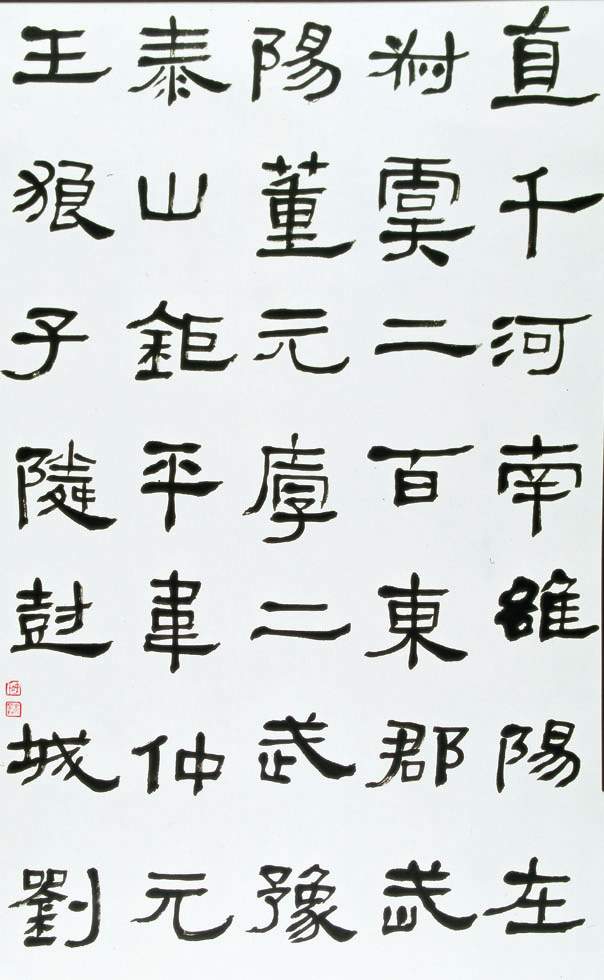 直千河南雒陽左
尉虞二百東郡武
陽董元厚二武豫
泰山鉅平韋仲元
王狼子隣彭城劉